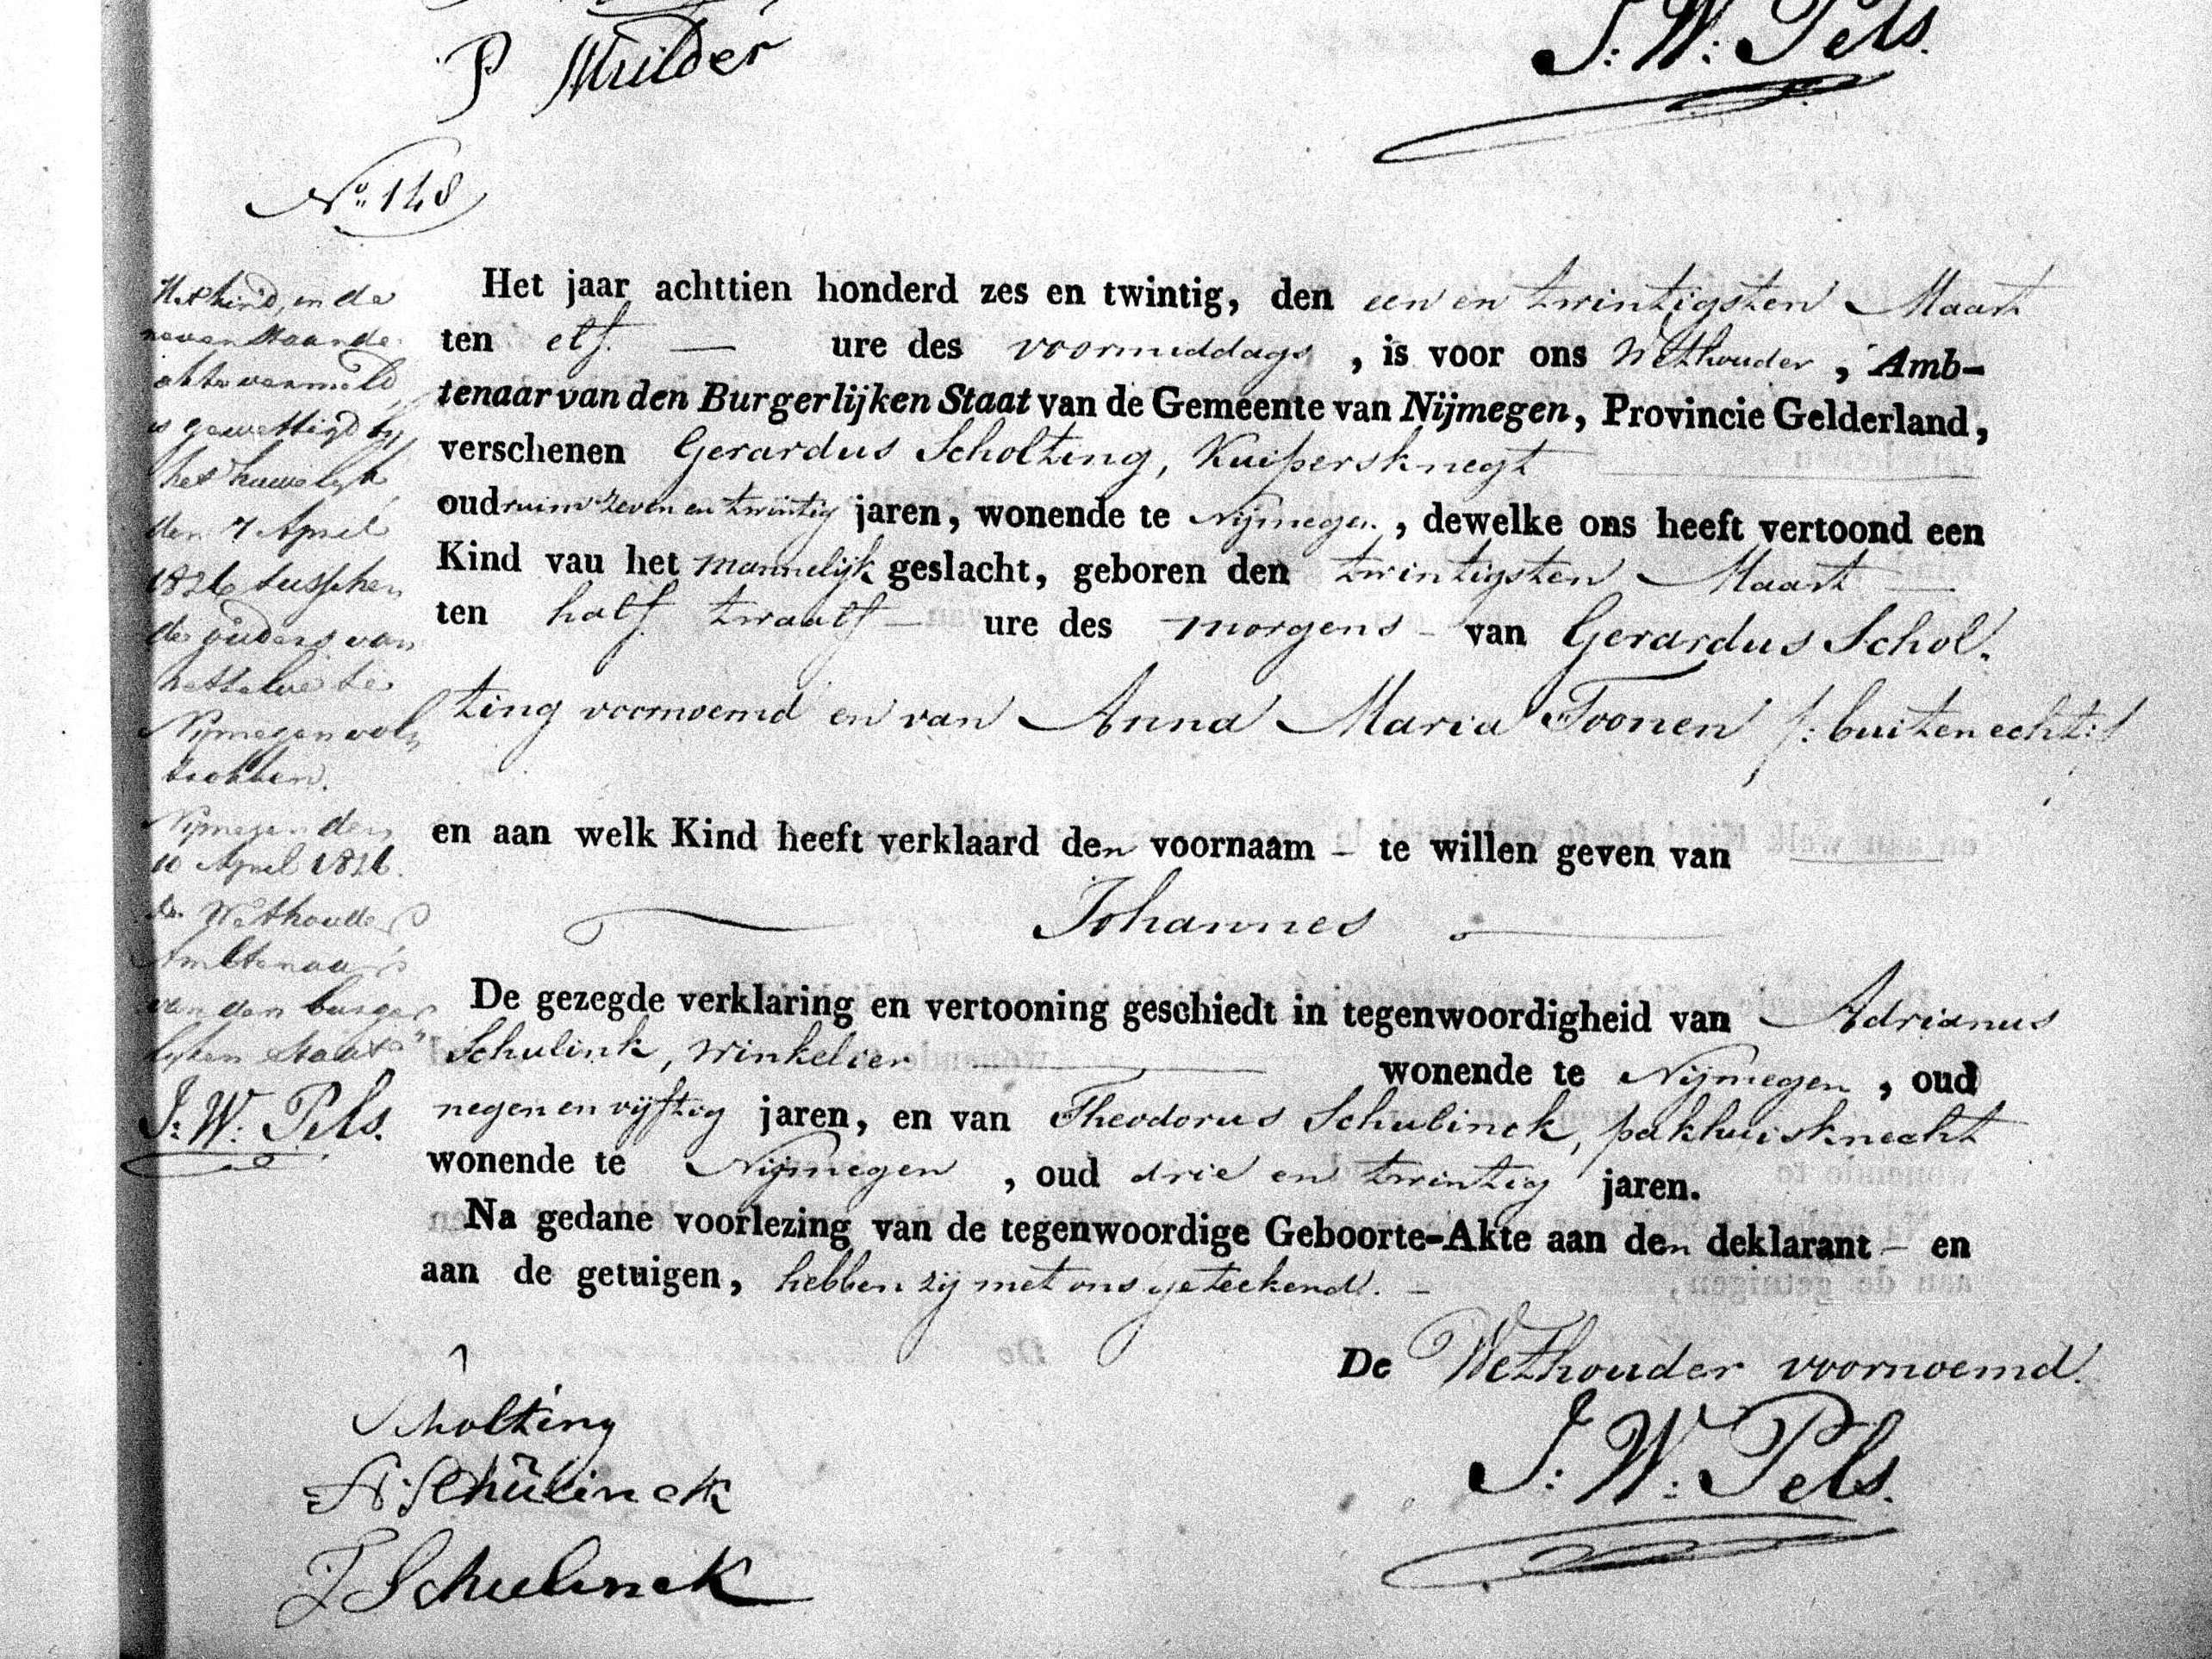 P Mulder
J: W: Pels.
No 148
Het kind, in de
nevenstaande
akte vermeld,
is gewettigd by
het huwelyk,
den 7 April
1826 tusschen
de ouders van
hetzelve te
Nijmegen vol-
trokken.
Nijmegen den
10 April 1826.
De Wethouder
Ambtenaar
van den burger
lyken Staat
J: W: Pels.
Het jaar achttien honderd zes en twintig, den een en twintigsten Maart
ten elf — ure des voormiddags, is voor ons Wethouder, Amb-
tenaar van den Burgerlijken Staat van de Gemeente van Nijmegen, Provincie Gelderland,
verschenen Gerardus Scholting, Kuipersknegt
oud ruim zeven en twintig jaren, wonende te Nijmegen, dewelke ons heeft vertoond een
Kind vau het mannelijk geslacht, geboren den twintigsten Maart —
ten half twaalf — ure des morgens - van Gerardus Schol-
ting voornoemd en van Anna Maria Toonen /: buiten echt :/
en aan welk Kind heeft verklaard den voornaam - te willen geven van
Johannes
De gezegde verklaring en vertooning geschiedt in tegenwoordigheid van Adrianus
Schulink, winkelier — wonende te Nijmegen, oud
negen en vijftig jaren, en van Theodorus Schulinck, pakhuisknecht
wonende te Nijmegen, oud drie en twintig jaren.
Na gedane voorlezing van de tegenwoordige Geboorte-Akte aan den deklarant - en
aan de getuigen, hebben zij met ons geteekend. -
De Wethouder voornoemd.
Scholting
A Schülinck
T Schulinck
J: W: Pels.